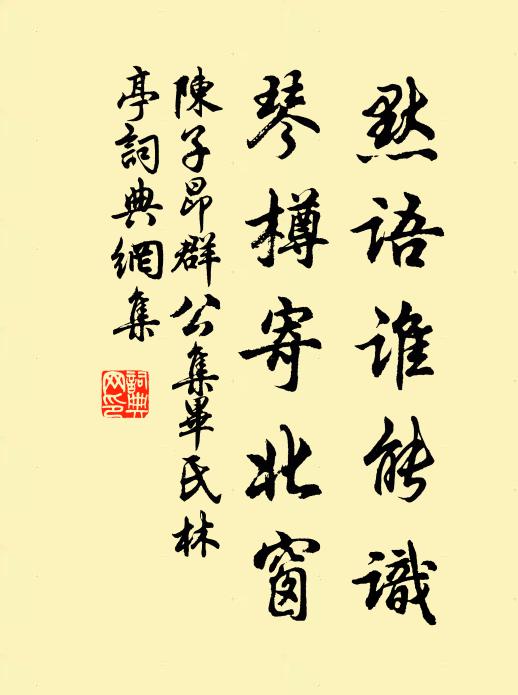 默語誰能識
琴樽寄北窗
陳子昂群公集畢氏林
亭詞典網集
詞典
网印